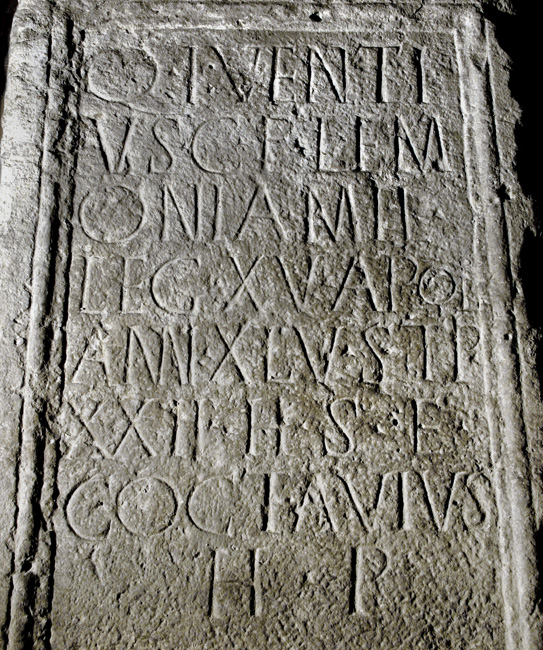 Q·IVENTI
VSC·F·LEM
ONIA MIL
LEG XV APOL
ANN·XLV·STIP
XXII·H·S·E
C OCTAVIVS
H P